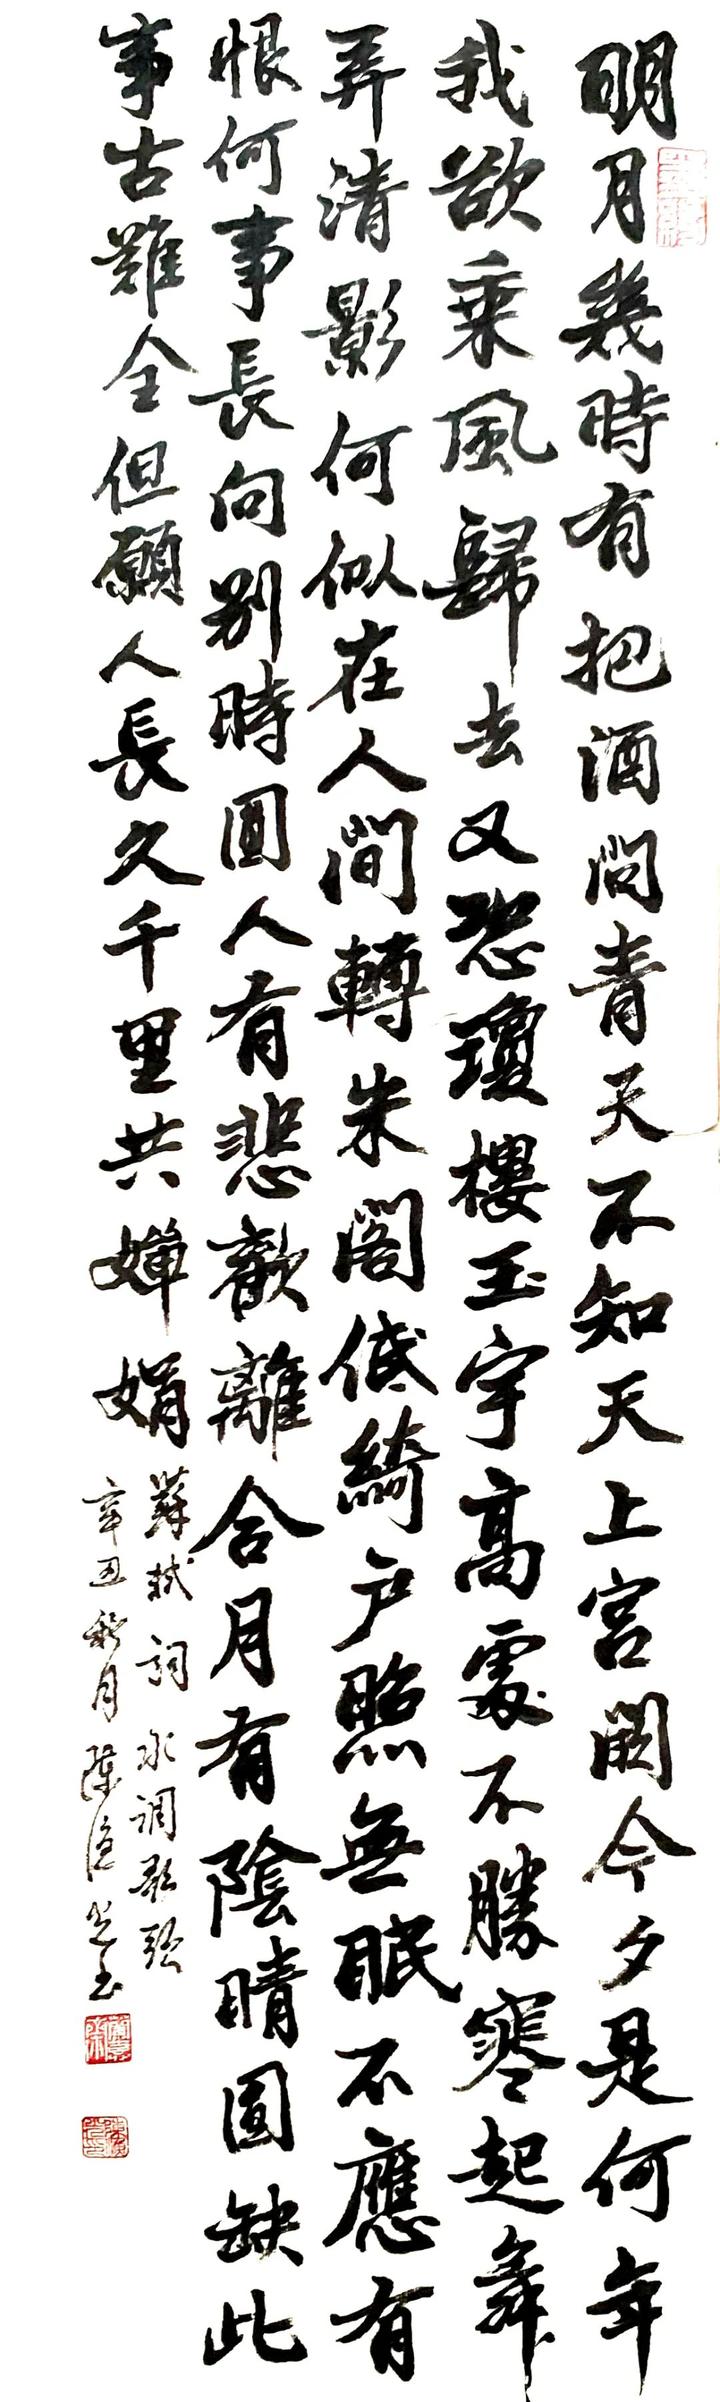 明月幾時有把酒問青天不知天上宮闕今夕是何年
我欲乘風歸去又恐瓊樓玉宇高處不勝寒起舞
弄清影何似在人間轉朱閣低綺户照無眠不應有
恨何事長向别時圓人有悲歡離合月有陰晴圓缺此
事古難全但願人長久千里共嬋娟
蘇軾詞水调歌頭
辛丑秋月陈书